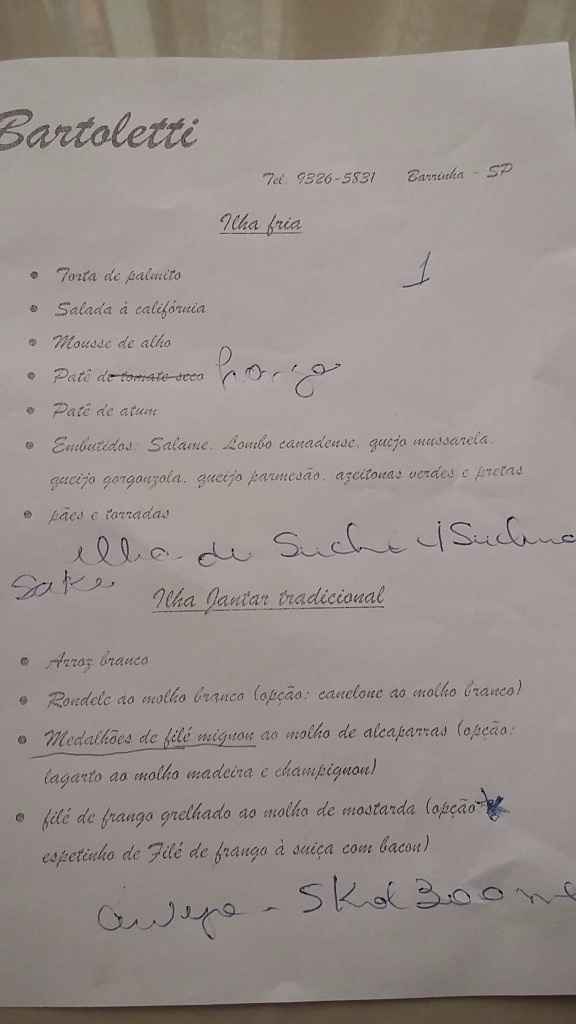 Bartoletti
Tel. 9326-5831 Barrinha - SP
Ilha fria
1
• Torta de palmito
• Salada à califórnia
• Mousse de alho
• Patê de tomate seco frango
• Patê de atum
• Embutidos: Salame, Lombo canadense, quejo mussarela,
queijo gorgonzola, queijo parmesão, azeitonas verdes e pretas
• pães e torradas
ilha de
Sake
Ilha Jantar tradicional
• Arroz branco
• Rondele ao molho branco (opção: canelone ao molho branco)
• Medalhões de filé mignon ao molho de alcaparras (opção:
lagarto ao molho madeira e champignon)
• filé de frango grelhado ao molho de mostarda (opção
espetinho de Filé de frango à suiça com bacon)
- Skol 300 ml